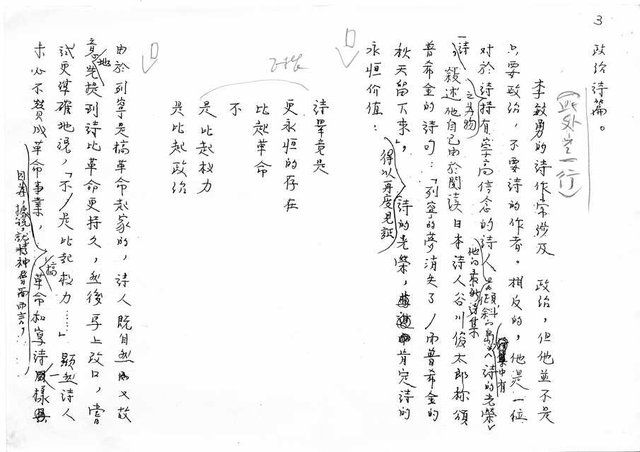 3
政治詩篇。
(此处空一行)
李敏勇的詩作常涉及政治,但他並不是
只要政治,不要詩的作者。相反的,他是一位
對於詩持有崇高信念的詩人。
他的來詩集
集中有
詩的光榮
之事物
一詩,敘述他自己由於閱讀日本詩人谷川俊太郎称頌
普希金的詩句:「列寧的夢消失了/而普希金的
秋天留下來」,
得以再度見証
詩的光榮,
肯定詩的
永恒价值:
詩畢竟是
更永恒的存在
比起革命
不
是比起权力
是比起政治
由於列寧是搞革命起家的,詩人既自然而又故
意地先提到詩比革命更持久,然後馬上改口,嘗
試更準確地說,「不/是比起权力……」顯然詩人
未必不贊成革命事業,
搞革命和寫詩
因為據說,就精神層面而言,